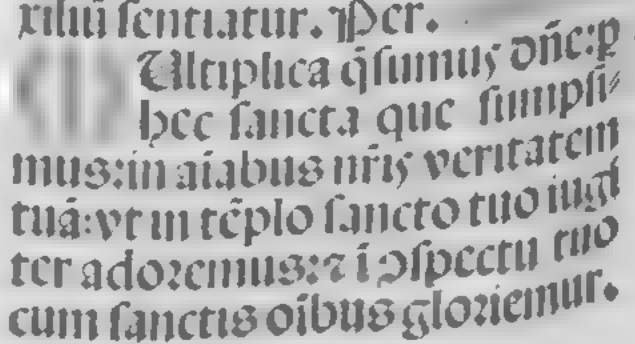 xiliū sentiatur. Per.
MUltiplica q̄sumus dn̄e: p
hec sancta que sumpsi-
mus: in aīabus nr̄is veritatem
tuā: vt in tēplo sancto tuo iugi
ter adoremus: ⁊ ī ꝯspectu tuo
cum sanctis oībus gloriemur.